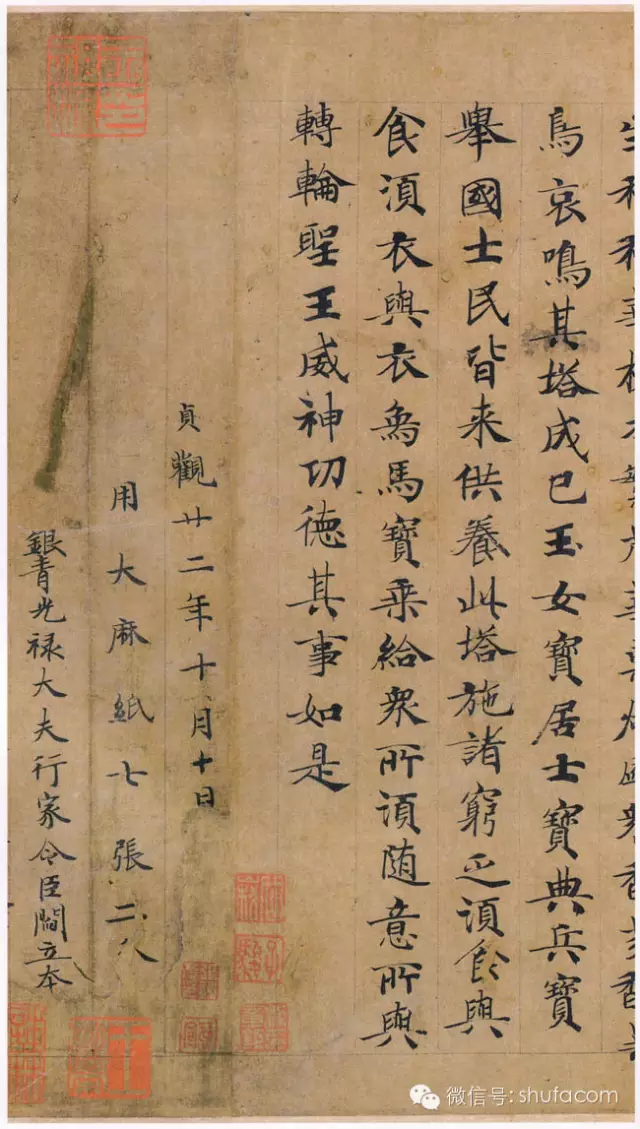 鳥哀鳴其塔成已玉女寶居士寶典兵寶
舉國士民皆来供養此塔施諸窮乏湏食與
食湏衣與衣爲馬寶乗給衆所湏随意所與
轉輪聖王威神功德其事如是
貞觀廿二年十月十日
用大麻紙七張二分
銀青光禄大夫行家令臣閻立本
微信号: shufacom